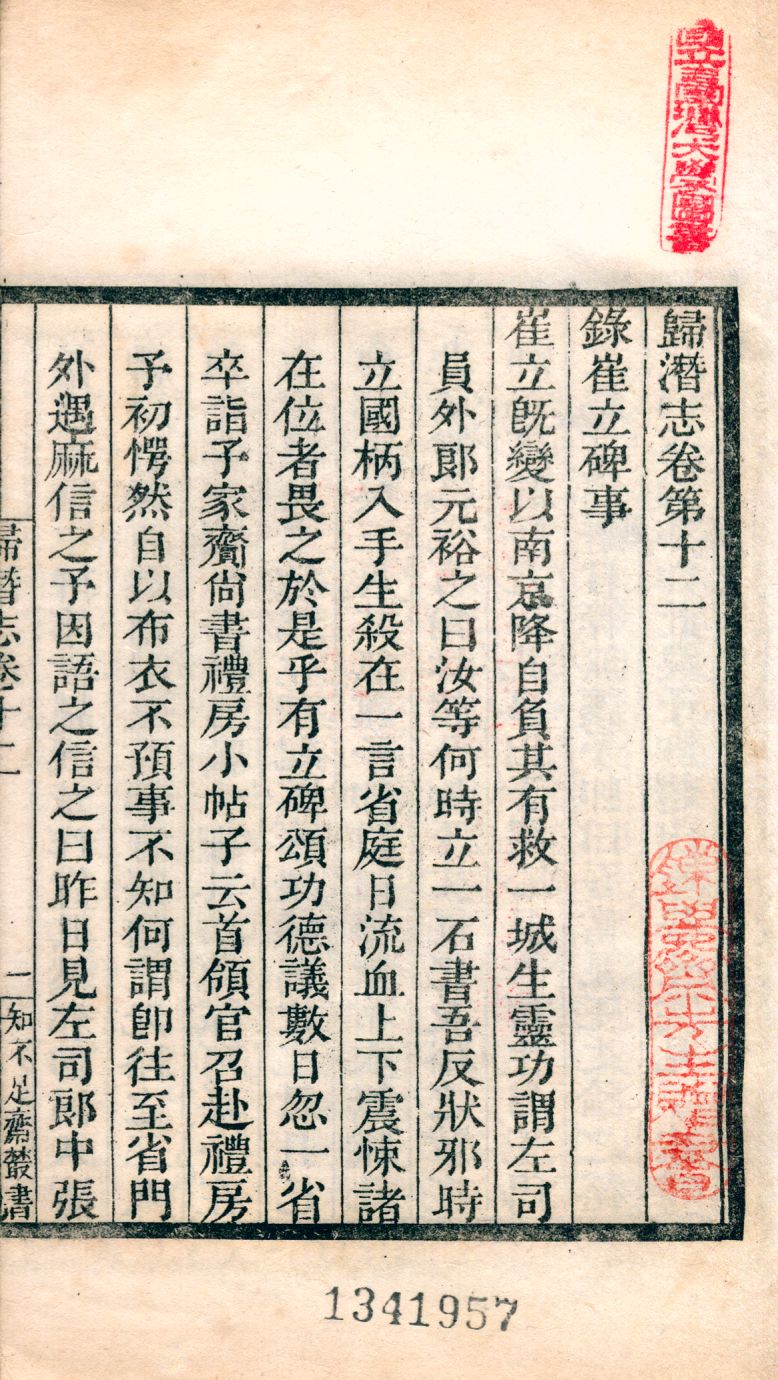 國立臺灣大學圖書
歸潛志卷第十二
錄崔立碑事
崔立旣變以南京降自負其有救一城生靈功謂左司
員外郞元裕之曰汝等何時立一石書吾反狀邪時
立國柄入手生殺在一言省庭日流血上下震悚諸
在位者畏之於是乎有立碑頌功德議數日忽一省
卒詣予家齎尙書禮房小帖子云首領官召赴禮房
予初愕然自以布衣不預事不知何謂卽往至省門
外遇麻信之予因語之信之曰昨日見左司郞中張
歸潛志卷十二
一
知不足齋叢書
1341957